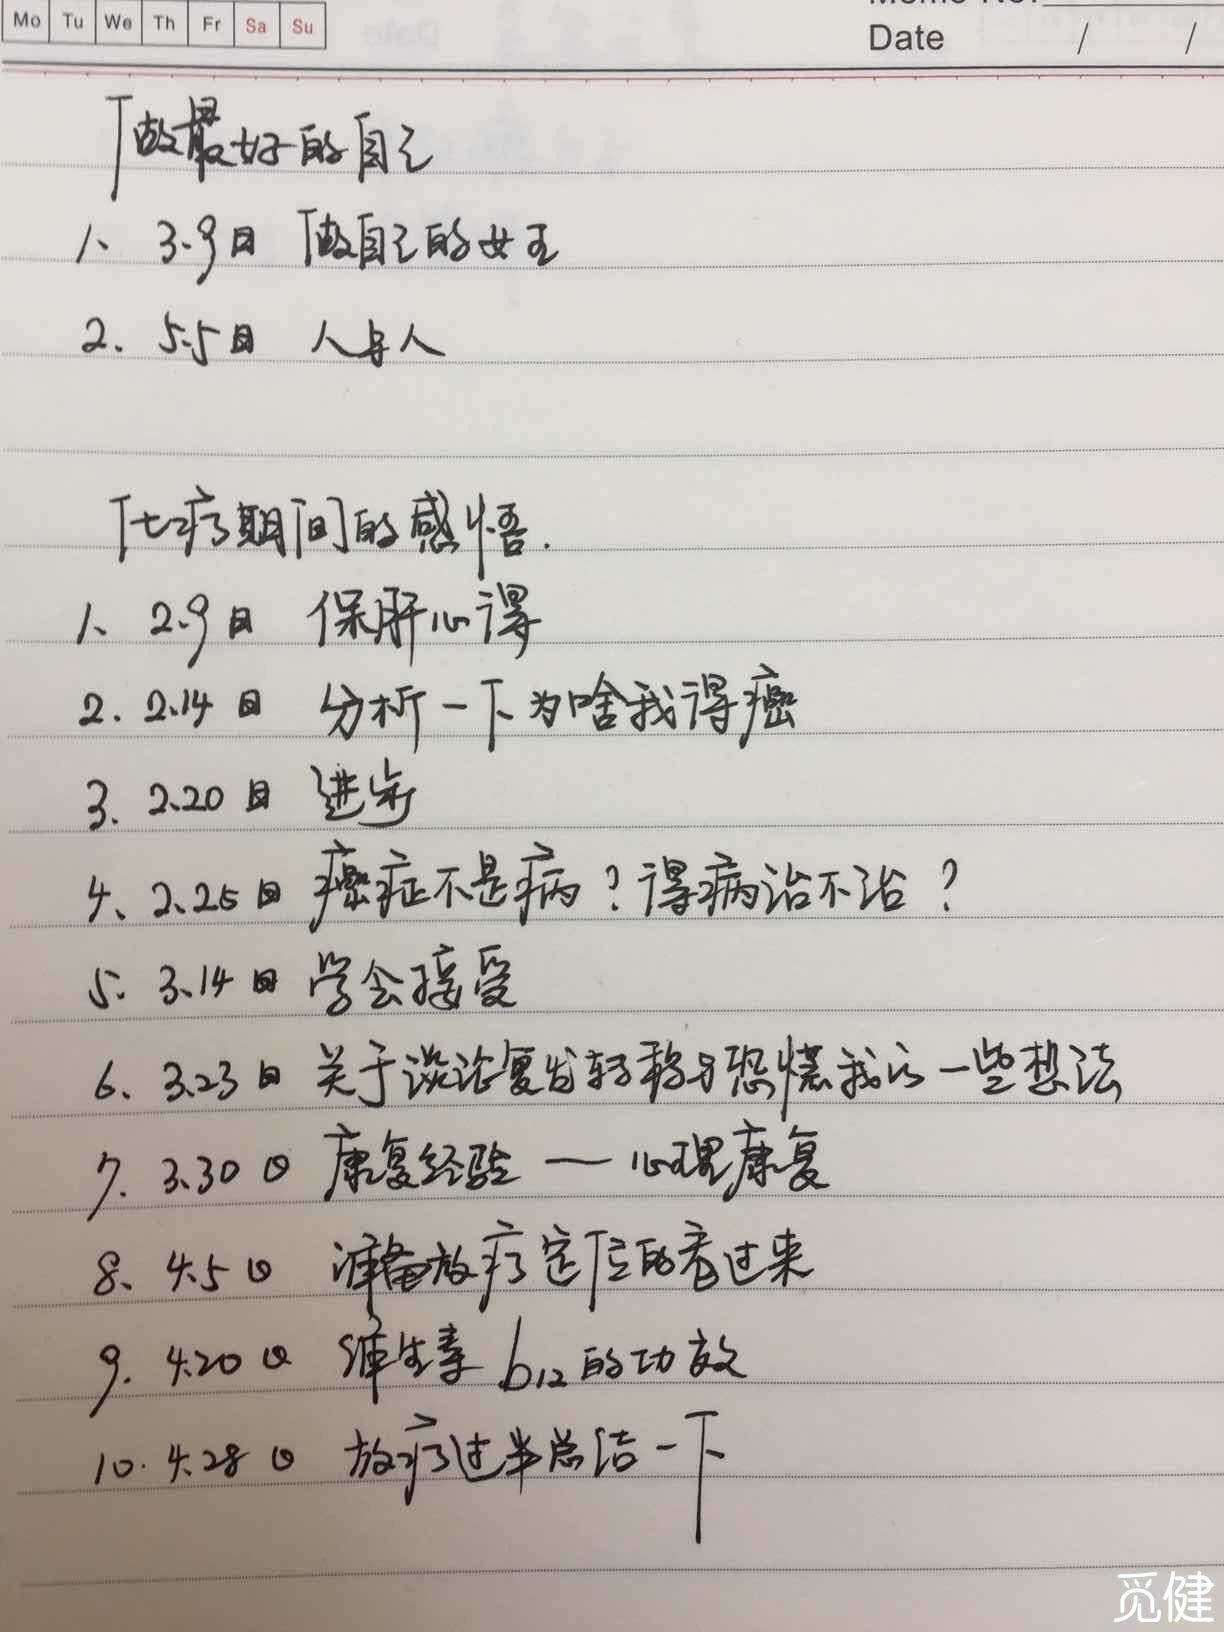 Mo Tu We Th Fr Sa Su
Date / /
做最好的自己
1、 3.9日 做自己的女王
2. 5.5日 人与人
化疗期间的感悟.
1、 2.9日 保肝心得
2. 2.14日 分析一下为啥我得癌
3. 2.20日 进步
4、 2.25日 癌症不是病？得病治不治？
5. 3.14日 学会接受
6、 3.23日 关于谈论复发转移与恐慌我的一些想法
7. 3.30日 康复经验 — 心理康复
8、 4.5日 准备放疗定位的看过来
9. 4.20日 维生素 b12 的功效
10. 4.28日 放疗过半总结一下
觅健